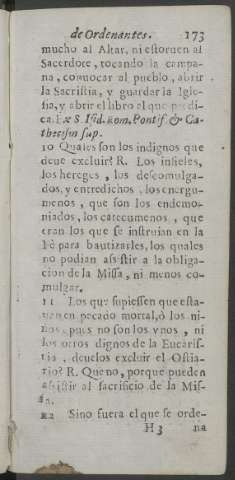 de Ordenantes. 173
mucho al Altar, ni estoruen al
Sacerdote, tocando la campa-
na, conuocar al pueblo, abrir
la Sacristia, y guardar la Igle-
sia, y abrir el libro el que predi-
ca. Ex S. Isid. Rom. Pontif. & Ca-
thecism sup.
10 Quales son los indignos que
deue excluir? R. Los infieles,
los hereges, los descomulga-
dos, y entredichos, los energu-
menos, que son los endemo-
niados, los catecumenos, que
eran los que se instruian en la
Fè para bautizarles, los quales
no podian assistir a la obliga-
cion de la Missa, ni menos co-
mulgar.
11 Los que supiessen que esta-
uan en pecado mortal, ò los ni-
ños, pues no son los vnos, ni
los otros dignos de la Eucaris-
tia, deuelos excluir el Ostia-
rio? R. Que no, porque pueden
assistir al sacrificio de la Mis-
sa.
12 Sino fuera el que se orde-
H 3 na